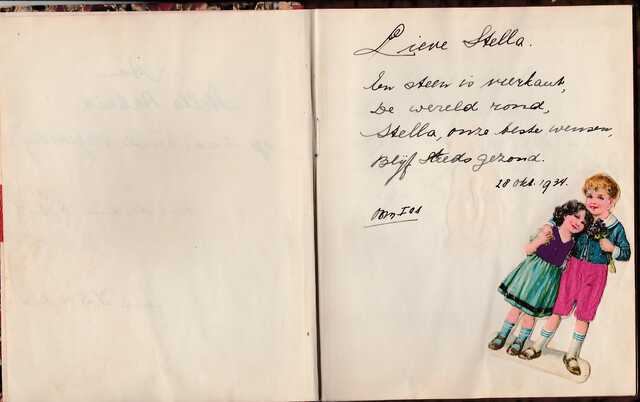 Lieve Stella.
Een steen is vierkant,
De wereld rond,
Stella, onze beste wensen,
Blijf steeds gezond.
28 Okt. 1934.
Oom Jos